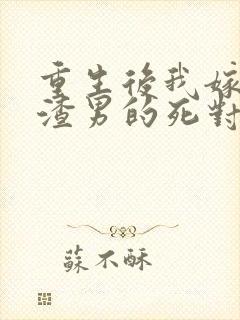 重生後我嫁
渣男的死對
蘇不酥